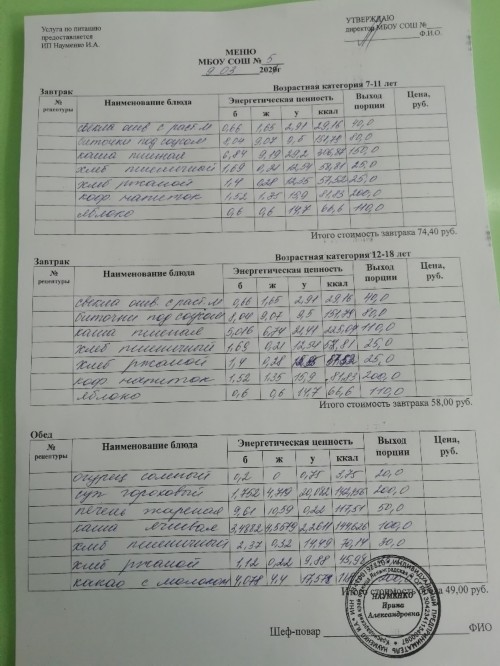 Услуга по питанию
предоставляется
ИП Науменко И.А.
УТВЕРЖДАЮ
директор МБОУ СОШ №
Ф.И.О.
МЕНЮ
МБОУ СОШ № 5
9 03 2020г
Завтрак Возрастная категория 7-11 лет
№ рецептуры Наименование блюда Энергетическая ценность Выход порции Цена, руб.
б ж у ккал
свекла отв с раст.м 0,66 1,65 2,91 29,16 40,0
биточки под соусом 8,04 9,07 151,79 80,0
каша пшенная 6,84 9,19 29,2 150,0
хлеб пшеничный 1,69 0,21 12,54 58,81 25,0
хлеб ржаной 1,4 0,28 57,52 25,0
коф напиток 1,52 1,35 15,9 81,83 200,0
яблоко 0,6 0,6 14,7 66,6 110,0
Итого стоимость завтрака 74,40 руб.
Завтрак Возрастная категория 12-18 лет
№ рецептуры Наименование блюда Энергетическая ценность Выход порции Цена, руб.
б ж у ккал
свекла отв с раст.м 0,66 1,65 2,91 29,16 40,0
биточки под соусом 9,07 151,79 80,0
каша пшенная 5,016 6,74 21,41 110,0
хлеб пшеничный 1,69 0,21 12,54 58,81 25,0
хлеб ржаной 1,4 0,28 57,52 25,0
коф напиток 1,52 1,35 15,9 81,83 200,0
яблоко 0,6 0,6 14,7 66,6 110,0
Итого стоимость завтрака 58,00 руб.
Обед
№ рецептуры Наименование блюда Энергетическая ценность Выход порции Цена, руб.
б ж у ккал
огурец соленый 0,2 0 0,75 3,75 20,0
суп гороховый 200,0
печень жареная 9,61 10,39 0,22 50,0
каша ячневая 100,0
хлеб пшеничный 2,37 0,32 14,49 70,14 30,0
хлеб ржаной 1,12 0,22 9,88 45,98
какао с молоком 4,078
Итого стоимость 49,00 руб.
НАУМЕНКО
Ирина
Александровна
Шеф-повар ФИО